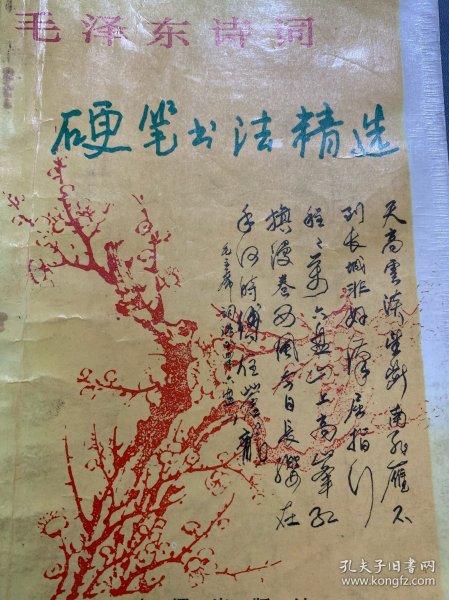 毛泽东诗词
硬笔书法精选
天高雲淡望断南飛雁不
到长城非好漢屈指行
程二萬六盘山上高峰红
旗漫卷西風今日长缨在
手何时缚住苍龍
毛主席词清平乐六盘山
孔夫子旧书网
www.kongfz.com